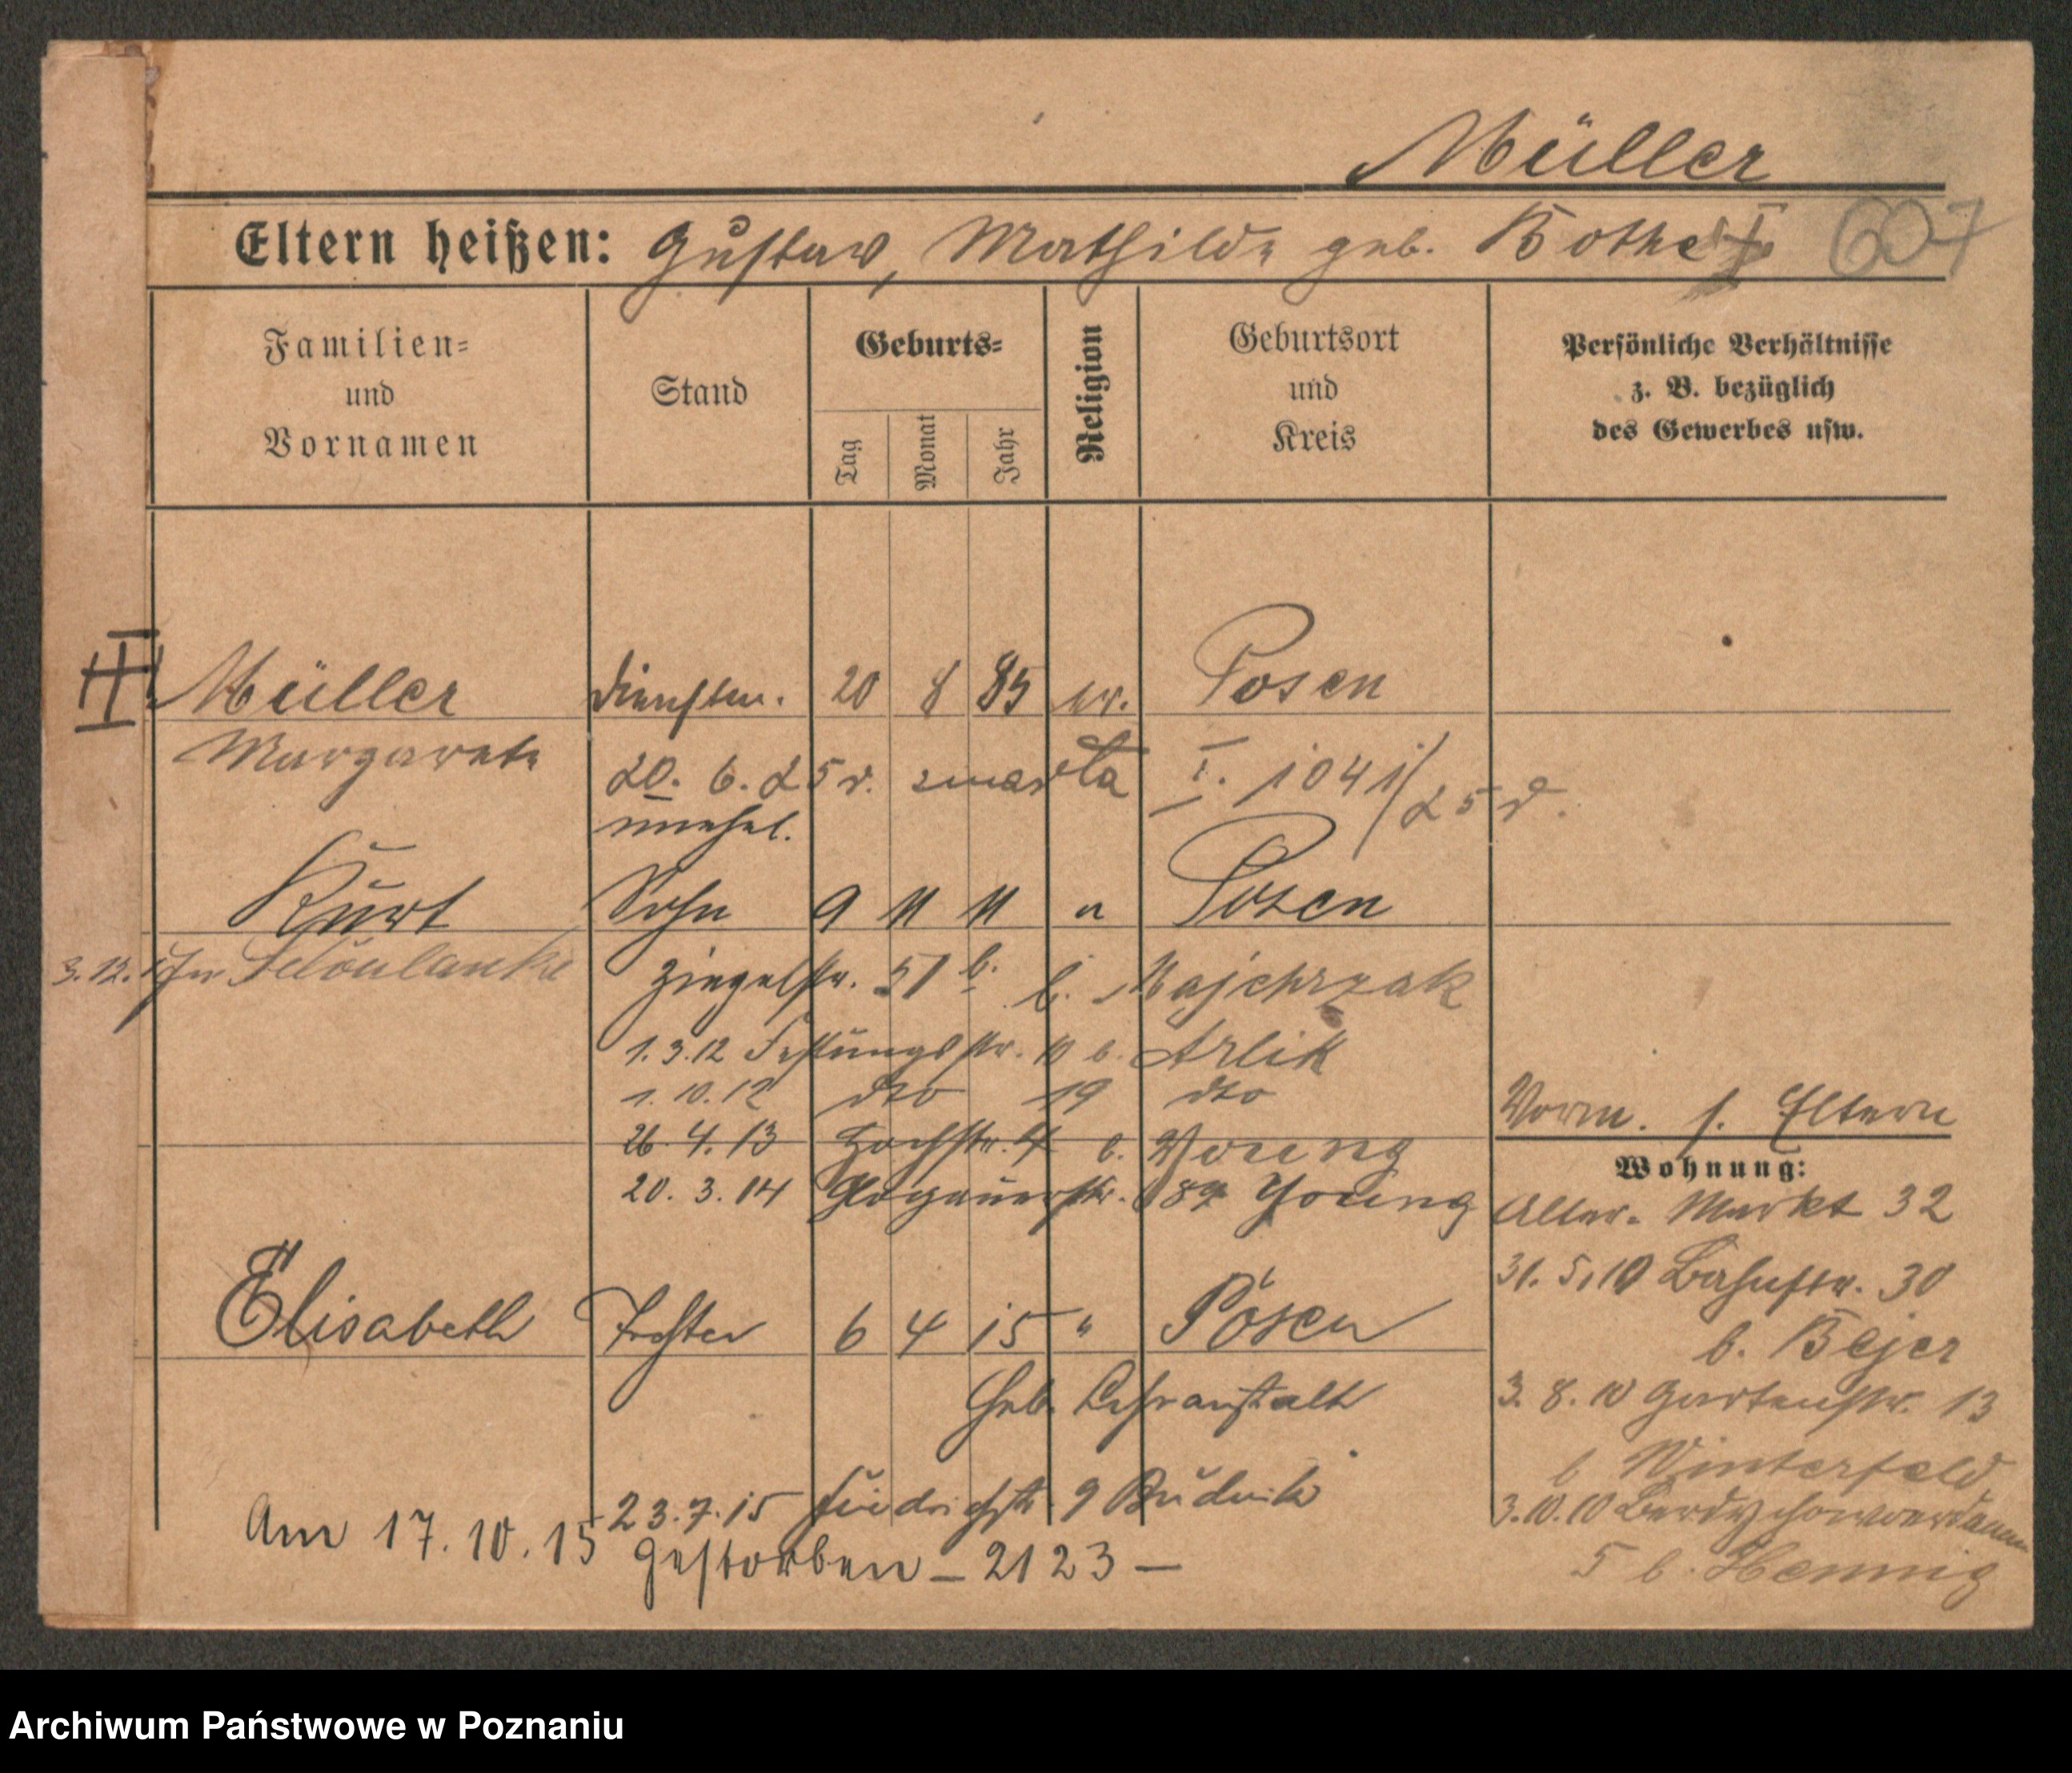 Müller
Eltern heißen: Gustav, Mathilde geb. Bothe 607
Familien-
und
Vornamen
Stand
Geburts-
Tag
Monat
Jahr
Religion
Geburtsort
und
Kreis
Persönliche Verhältnisse
z. B. bezüglich
des Gewerbes usw.
III Müller 20 8 85 ev. Posen
Margarete
20. 6. 25 r. zmarła I. 1041/25 r.
unehel.
Kurt Sohn 9 11 11 " Posen
3.12. In Schönlanke
Ziegelstr. 51 b. b. Majchrzak
1.3.12 Festungsstr. 10 b. Arlik
1.10.12 dto 19 dto
26.4.13 Hochstr. 4 b. Young
20.3.14 Glogauerstr. 89 Young
Elisabeth Tochter 6 4 15 " Posen
Heb. Lehranstalt
23.7.15 Friedrichstr. 9 Rudnik
Am 17.10.15 gestorben – 2123 –
Vorm. s. Eltern
Wohnung:
Alter Markt 32
31.5.10 Bahnstr. 30
b. Bejer
3.8.10 Gartenstr. 13
b Winterfeld
3.10.10 Berdychowoerdamm
5 b. Hennig
Archiwum Państwowe w Poznaniu